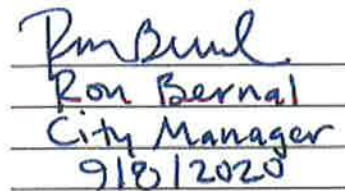 Ron Bernal
Ron Bernal
City Manager
9/8/2020